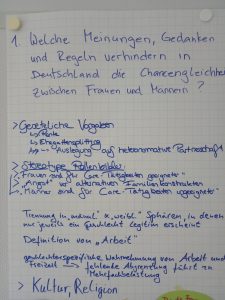 1. Welche Meinungen, Gedanken
und Regeln verhindern in
Deutschland die Chancengleichheit
zwischen Frauen und Männern?
> Gesetzliche Vorgaben
↳ Rente
↳ Ehegattensplitting
↳ "Auslegung" auf heteronormative Partnerschaft
> Stereotype Rollenbilder
↳ "Frauen sind für Care-Tätigkeiten geeigneter"
↳ "Angst" vor alternativen Familienkonstrukten
↳ Männer sind für Care-Tätigkeiten ungeeignet"
Trennung in "männl." & "weibl." Sphären, in denen
nur jeweils ein Geschlecht legitim erscheint
Definition von "Arbeit"
geschlechtsspezifische Wahrnehmung von Arbeit und
Freizeit → fehlende Abgrenzung führt zu
Mehrfachbelastung
> Kultur, Religion